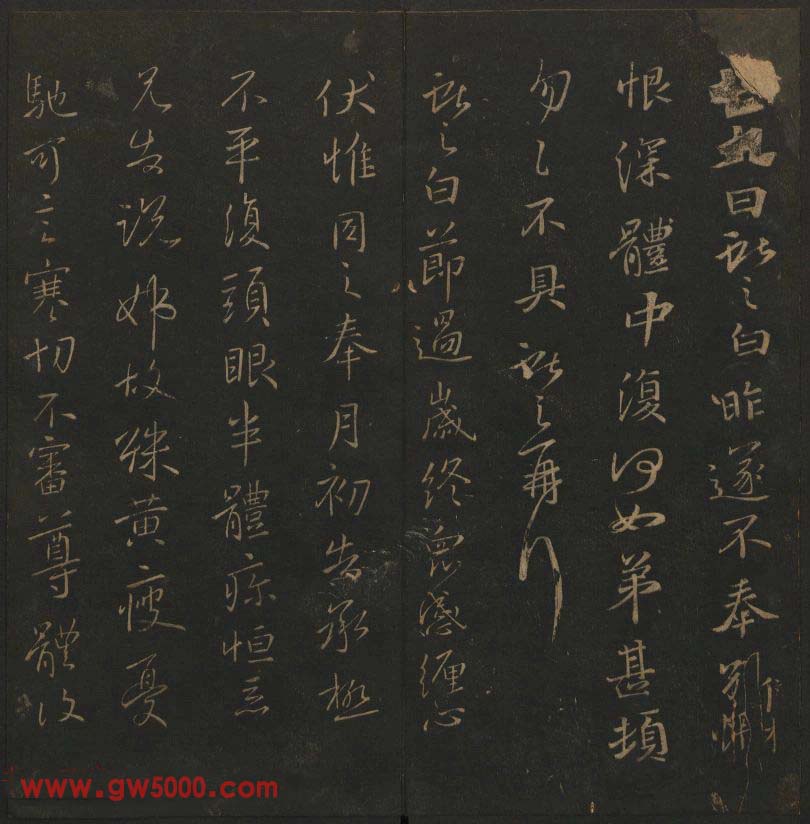 廿九日獻之白昨遂不奉別悵
恨深體中復何如弟甚頓
勿勿不具獻之再拜
獻之白節過歲終眾感纏心
伏惟同之奉月初告承極
不平復頭眼半體疼恒惡
兄告說姊故殊黃瘦憂
馳可言寒切不審尊體復
www.gw5000.com